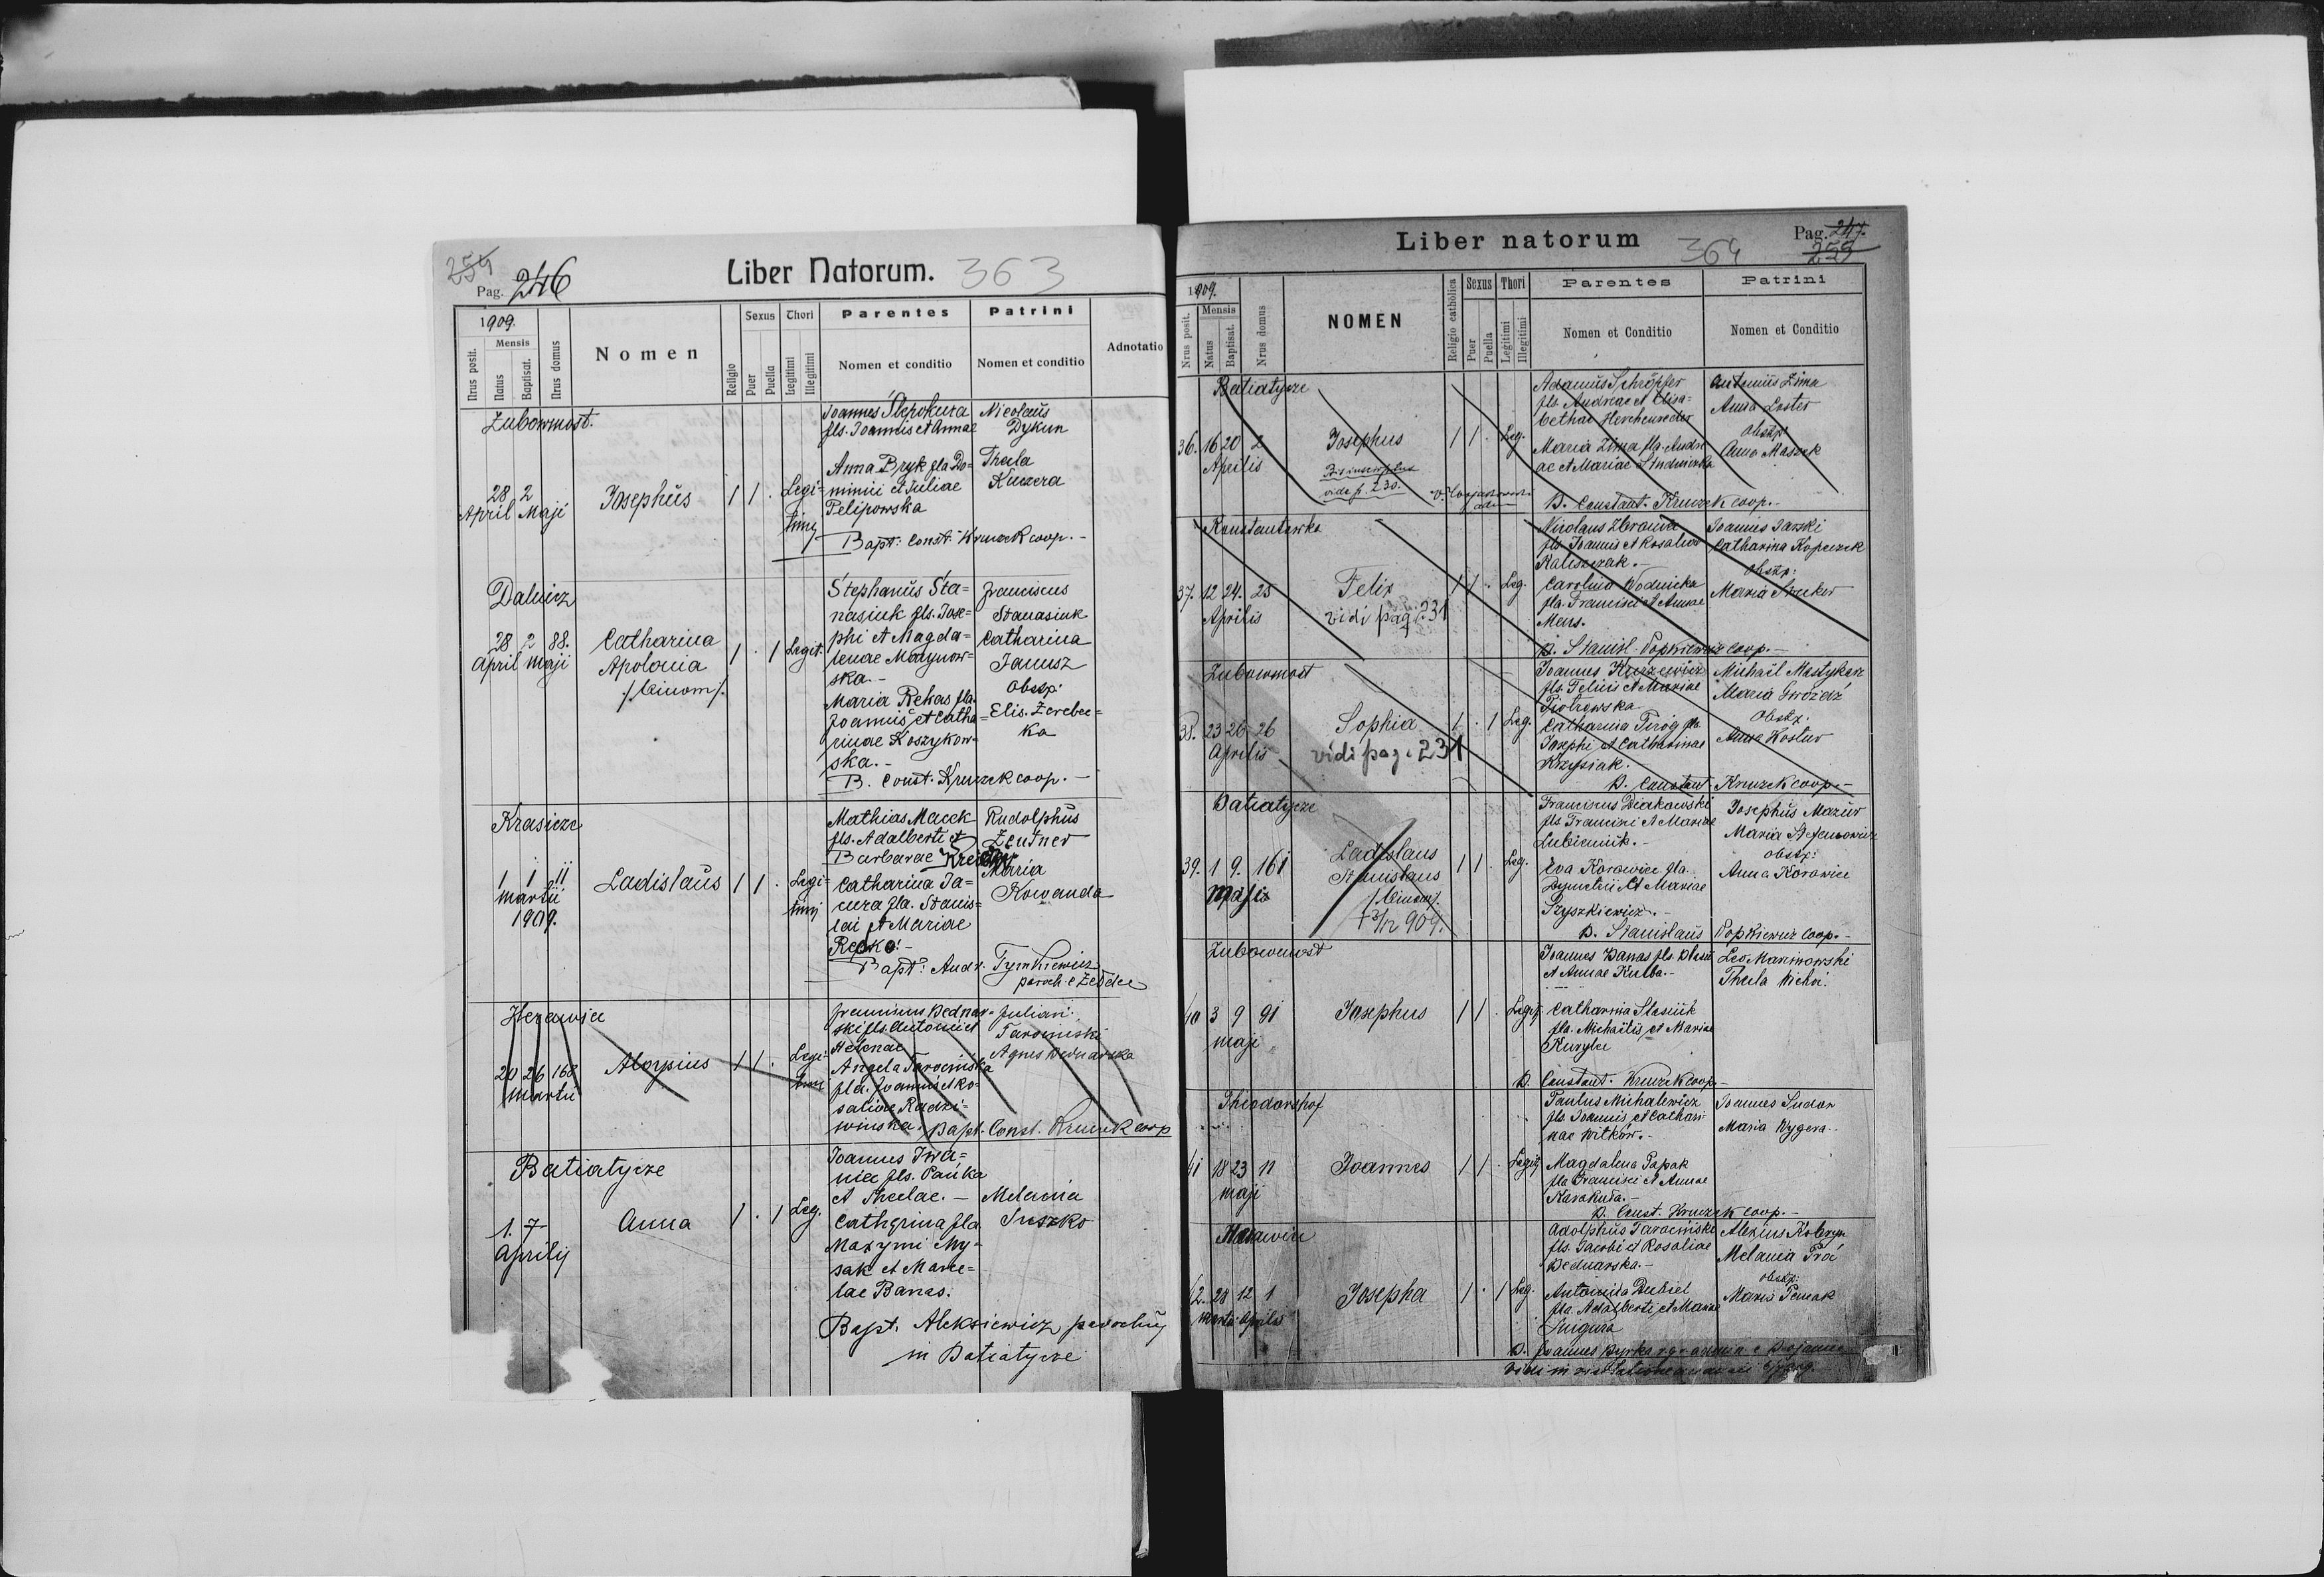 254
Pag. 246
Liber Natorum.
363
1909.
Nrus posit.
Mensis
Natus
Baptisat.
Nrus domus
Nomen
Religio
Sexus
Puer
Puella
Thori
Legitimi
Illegitimi
Parentes
Nomen et conditio
Patrini
Nomen et conditio
Adnotatio
Żubowmost.
28 2
April Maji
Josephus
1 1 .
Legi=
timj
Joannes Ślepokura
fls. Joannis et Annae
Anna Bryk fla Do=
minici et Juliae
Pelipowska
Nicolaus
Dykun
Thecla
Kuczera
Bapt: Const. Kruczek coop. -
Dalnicz
28 2 88.
April maji
Catharina
Apolonia
/: binom :/
1 . 1
Legit.
Stephanus Sta=
nasiuk fls. Jose=
phi et Magda=
lenae Martynow=
ska. -
Maria Rekas fla.
Joannis et Catha=
rinae Koszykow=
ska. -
Franciscus
Stanasiuk
Catharina
Janusz
Obstp:
Elis. Zerebec=
ka
B. Const. Kruczek coop. -
Krasicze
1 1 11
martii
1909.
Ladislaus
1 1 .
Legi=
timj
Mathias Macek
fls. Adalberti et
Barbarae
Catharina Ja=
cura fla. Stanis=
lai et Mariae
Repko. -
Rudolphus
Zentner
Maria
Kowanda
Bapt: Andr. Tymkiewicz
paroch. e Żełdec
Herawiec
20 26 168
martii
Aloysius
1 1 .
Legi=
timi
Franciscus Bednar=
ski fls. Antonii et
Helenae
Angela Tarocińska
fla. Joannis et Ro=
saliae Radzi=
wińska.
Julian
Tarociński
Agnes Bednarska
Bapt. Const. Kruczek coop
Batiatycze
1. 7
Aprilij
Anna
1 . 1
Leg.
Joannes Iwa=
nie fls. Pańka
et Theclae. -
Catharina fla.
Maxymi My=
sak et Marce=
lae Banas.
Melania
Suszko
Bapt. Aleksiewicz parochus
in Batiatycze
Liber natorum
364
Pag. 247.
255
1909.
Nrus posit.
Mensis
Natus
Baptisat.
Nrus domus
NOMEN
Religio catholica
Sexus
Puer
Puella
Thori
Legitimi
Illegitimi
Parentes
Nomen et Conditio
Patrini
Nomen et Conditio
Batiatycze
36. 16 20 2
Aprilis
Josephus
Bis inscriptus
vide p. 230.
1 1 .
Leg.
Adamus Schröpfer
fls. Andreae et Elisa=
bethae
Maria Zima fla. Andre
ae et Mariae
Antonius Zima
Anna Loster
Obstp:
Anna Maszek
B. Constant. Kruczek coop. -
Konstantówka
37. 12 24. 25
Aprilis
Felix
vidi pag. 231
1 1 .
Leg.
Nicolaus
fls. Joannis et Rosaliae
Kaliszczak. -
Carolina Wodnicka
fla. Francisci et Annae
Mens.
Joannes Jarski
Catharina Kopeczek
Obstp:
Maria Struker
B. Stanisl. Popkiewicz coop. -
Zubowmost
38. 23 26 26
Aprilis
Sophia
vidi pag. 231
1 . 1
Leg.
Joannes
fls. Felicis et Mariae
Piotrowska
Catharina Piróg fla.
Josephi et Catharinae
Krzysiak.
Michael Mastykarz
Maria Gwoidź
Obstp.
Anna Kostur
B. Constant. Kruczek coop. -
Batiatycze
39. 1 9. 161
Majis
Ladislaus
Stanislaus
/: binom :/
† 3/12 909.
1 1 .
Leg.
Franciscus Diakowski
fls Francisci et Mariae
Lubieniuk. -
Eva Korowiec fla.
Dymetrii et Mariae
Szyszkiewicz. -
Josephus Mazur
Maria Stefanowicz
Obstp:
Anna Korowiec
B. Stanislaus Popkiewicz coop. -
Zubowmost
40 3 9 91
maji
Josephus
1 1 .
Legit
Joannes Banas fls. Blasii
et Annae Kulba. -
Catharina Stasiuk
fla. Michaelis et Mariae
Kurylec
Leo Marmowski
Thecla Wichoć
B. Constant. Kruczek coop. -
Theodorshof
41 18 23 11
maji
Joannes
1 1 .
Legit
Paulus Michalewicz
fls. Joannis et Cathari
nae Witków. -
Magdalena Papak
fla Francisci et Annae
Narokura. -
Joannes Sudor
Maria Wygera. -
B. Const. Kruczek coop. -
42. 28 12 1
Martii Aprilis
Josepha
1 . 1
Leg.
Adolphus Tarociński
fls. Jacobi et Rosaliae
Bednarska. -
Antonina Dubiel
fla. Adalberti et Mariae
Sługura
Alexius Kobryn
Melania Proć
Obstp:
Maria Pencak
B. Joannes